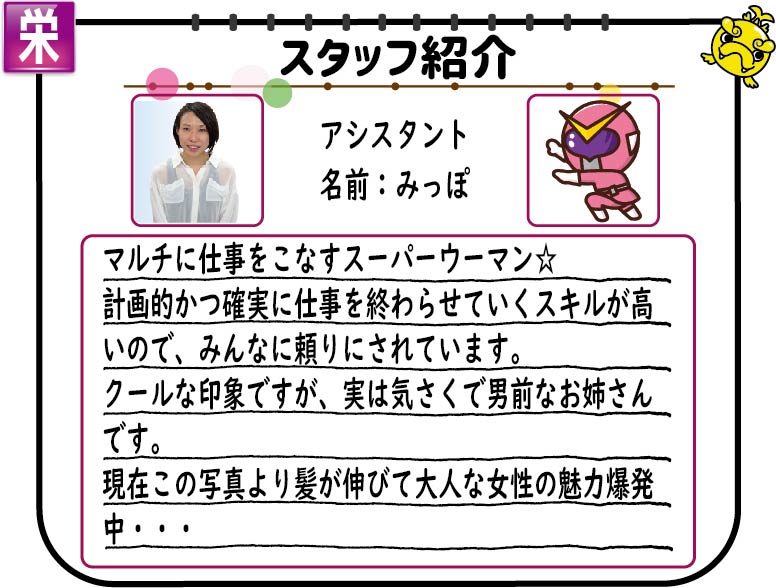 栄
スタッフ紹介
アシスタント
名前：みっぽ
マルチに仕事をこなすスーパーウーマン☆
計画的かつ確実に仕事を終わらせていくスキルが高
いので、みんなに頼りにされています。
クールな印象ですが、実は気さくで男前なお姉さん
です。
現在この写真より髪が伸びて大人な女性の魅力爆発
中・・・